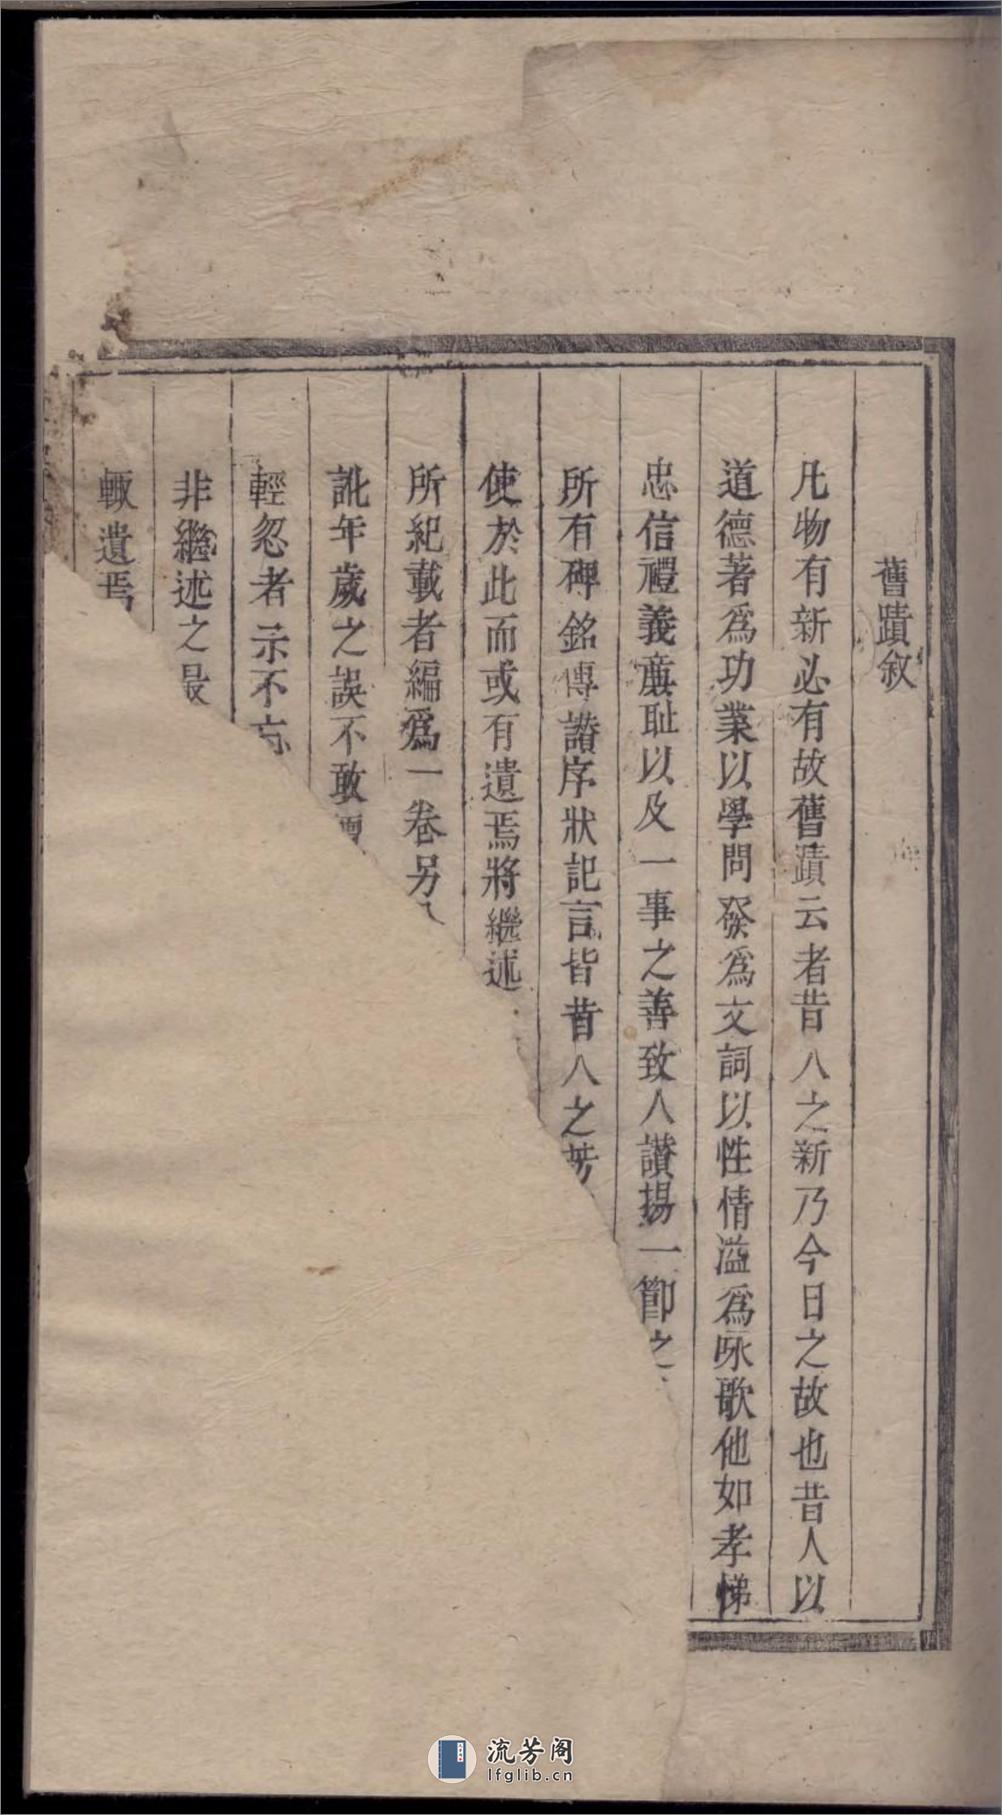 舊蹟敘
凡物有新必有故舊蹟云者昔人之新乃今日之故也昔人以
道德著爲功業以學問發爲文詞以性情溢爲咏歌他如孝悌
忠信禮義廉耻以及一事之善致人讃揚一節之
所有碑銘傳讃序狀記言皆昔人之芳
使於此而或有遺焉將繼述
所紀載者編爲一卷另
訛年歲之誤不敢
輕忽者示不忘
非繼述之最
輙遺焉
流芳阁
lfglib.cn